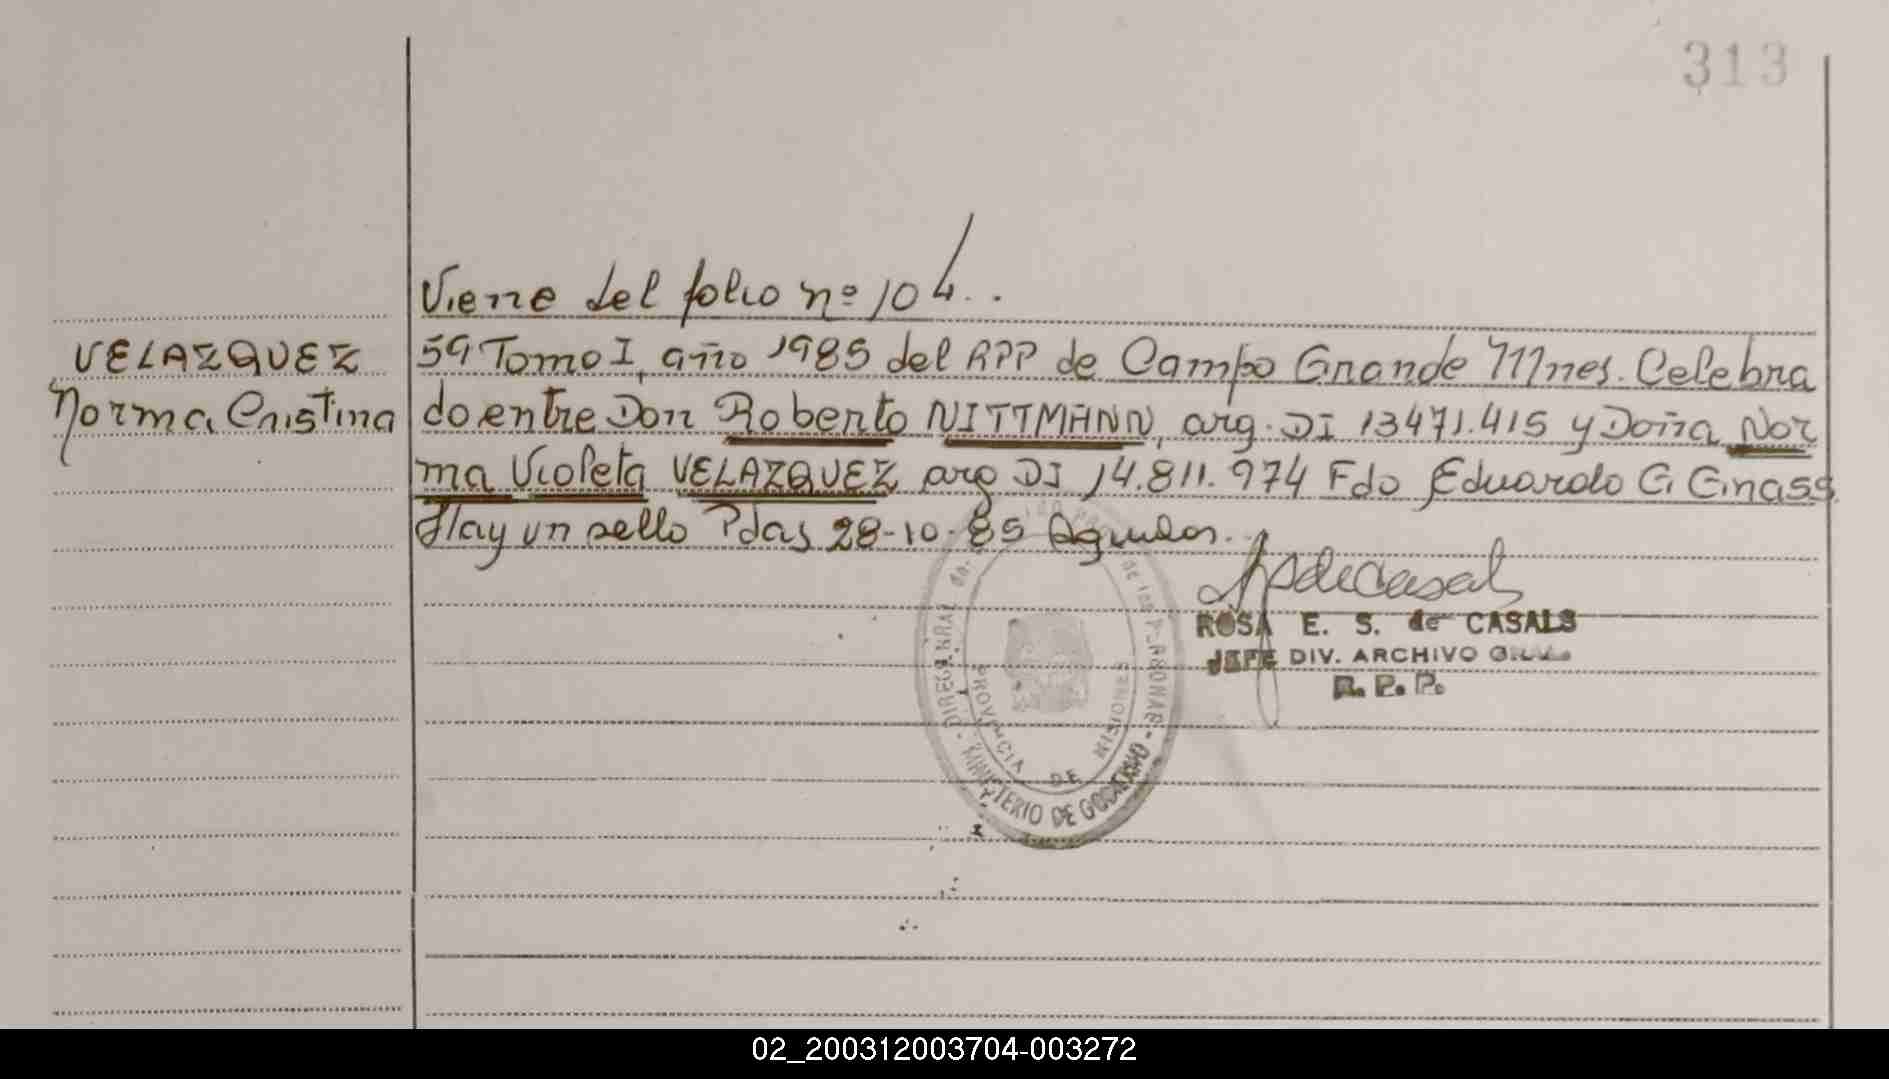 313
Viene del folio nº 104..
VELAZQUEZ
Norma Cristina
59 Tomo I, año 1985 del RPP de Campo Grande Mnes. Celebra
do entre Don Roberto NITTMANN, arg. DI 13471.415 y Doña Nor
ma Violeta VELAZQUEZ arg DI 14.811.974 Fdo Eduardo G. Grass.
Hay un sello Pdas 28-10-85
ROSA E. S. de CASALS
JEFE DIV. ARCHIVO GRAL.
R. P. P.
de las PERSONAS
PROVINCIA DE MISIONES
MINISTERIO DE GOBIERNO
02_200312003704-003272